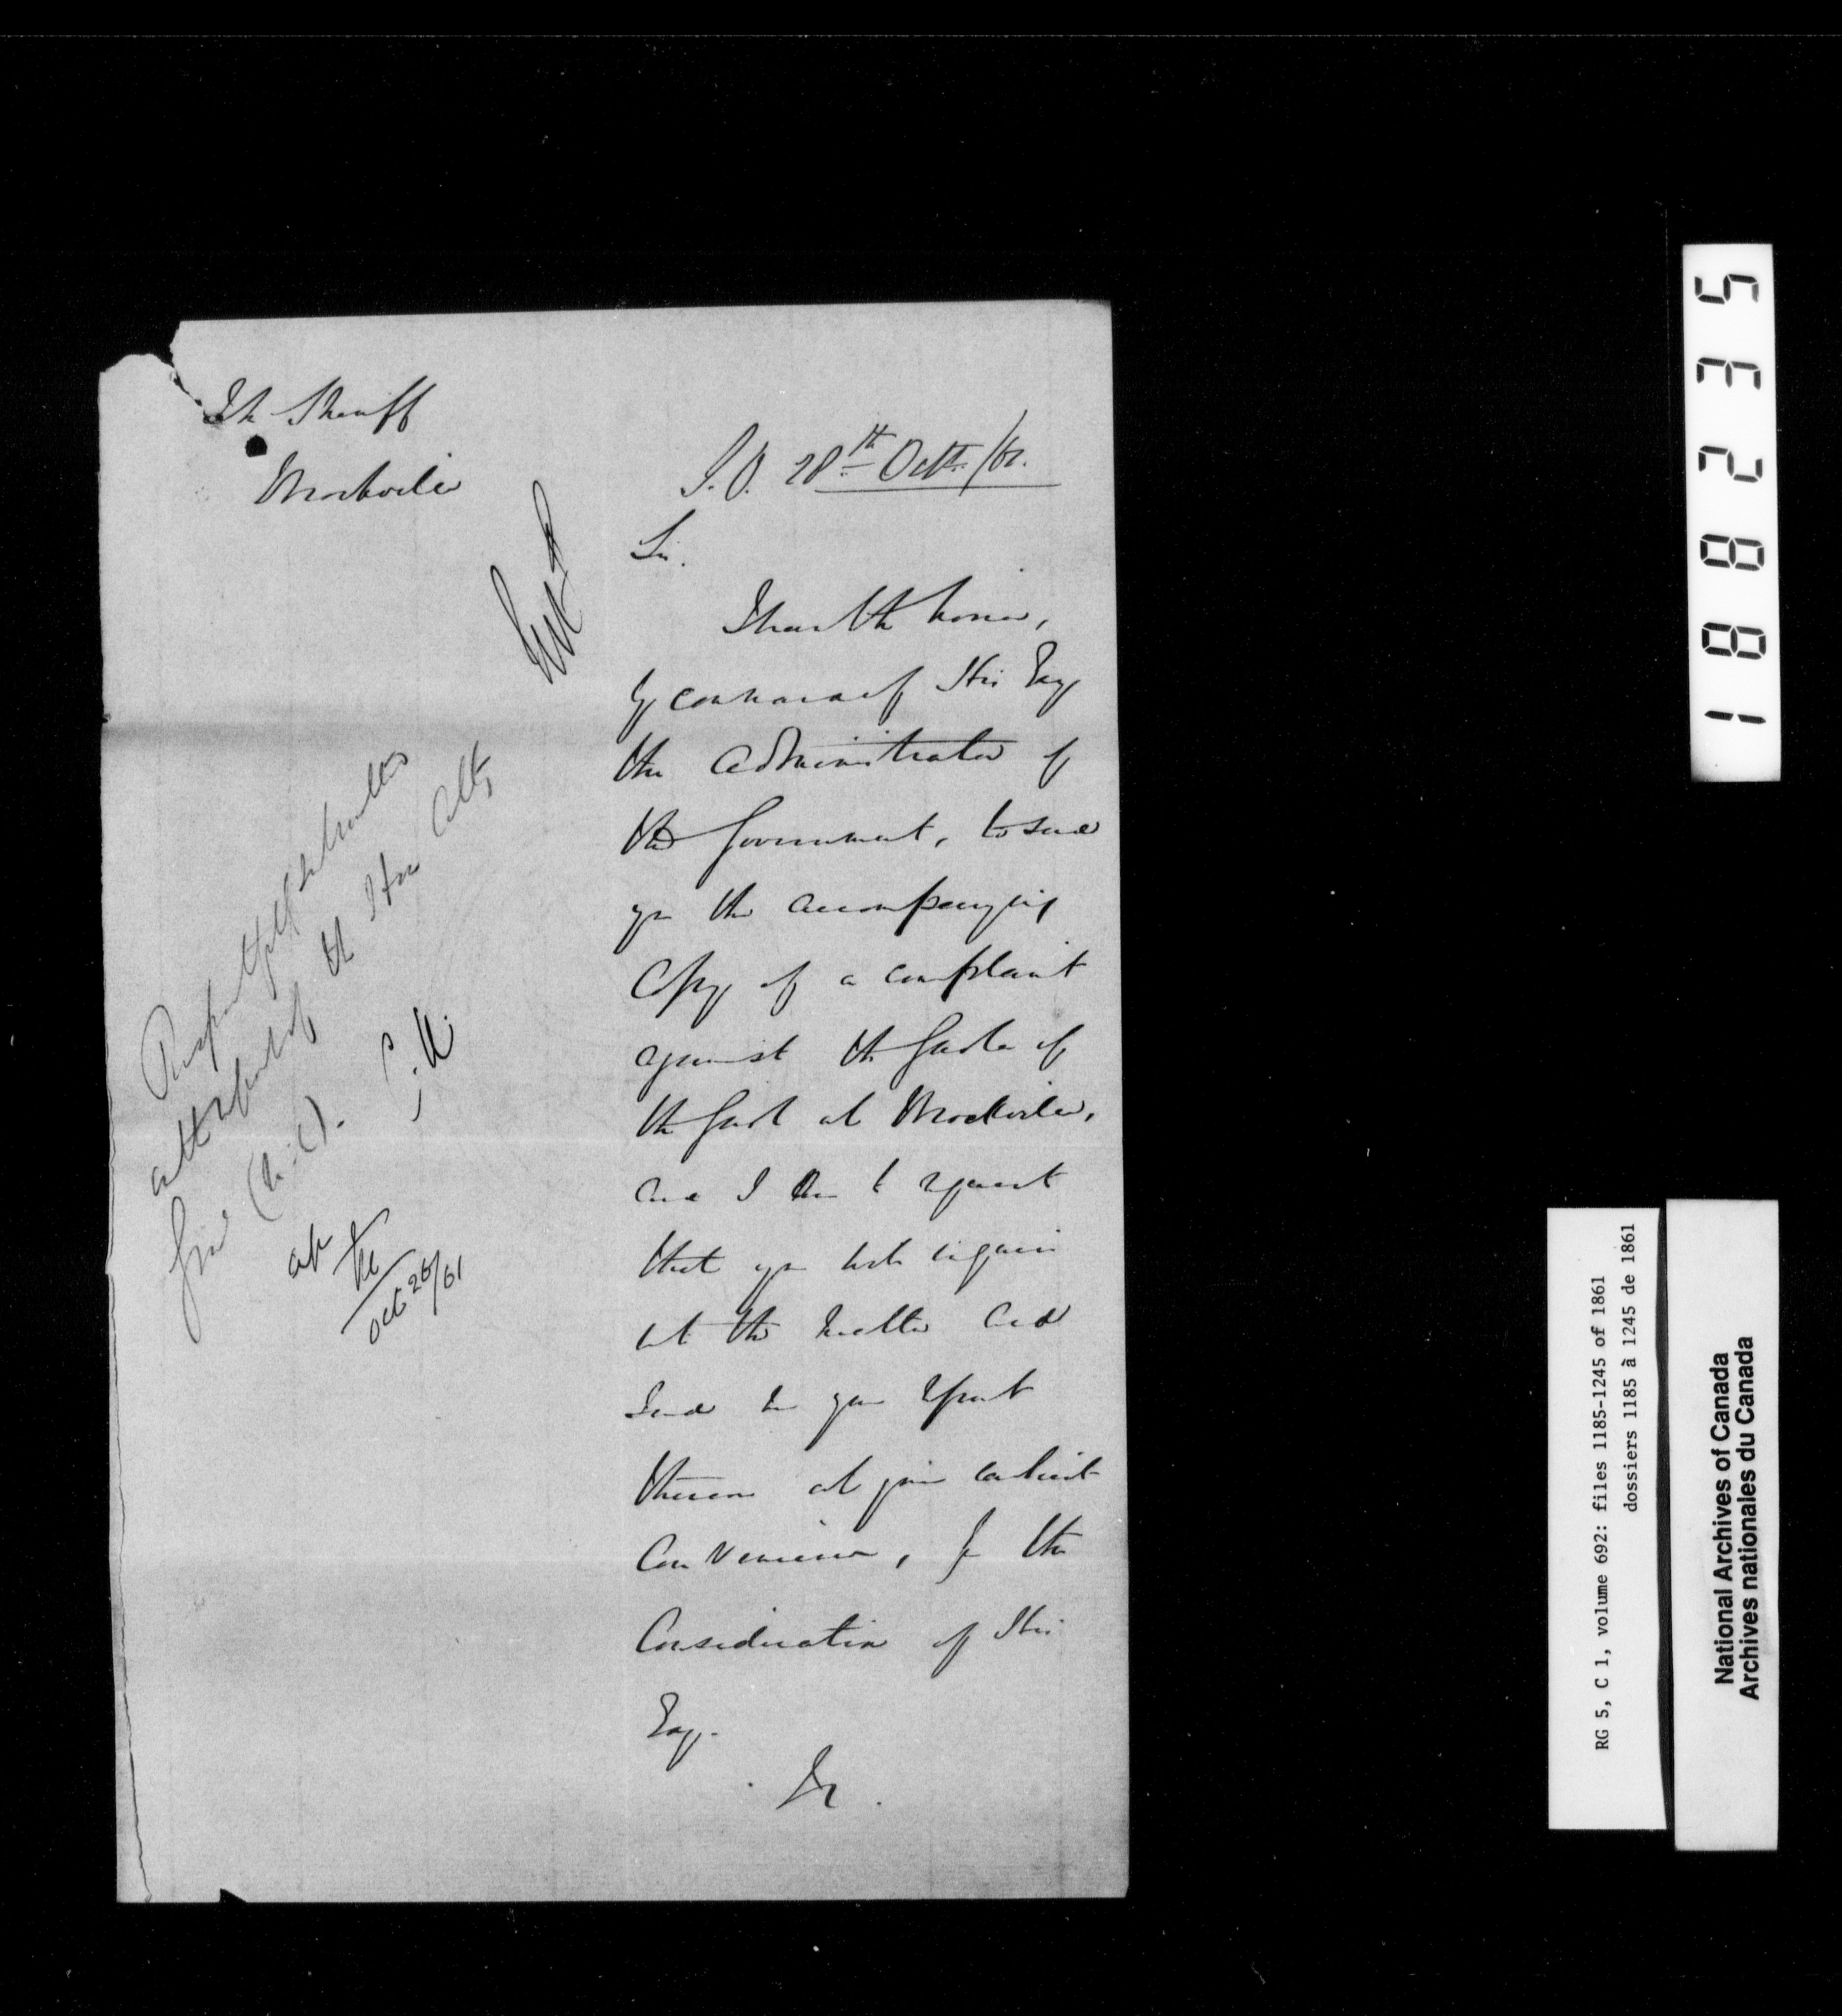 The Sheriff
Brockville
S.O. 28th Octr /61.
Sir.
I have the honor,
by command of His Excy
the Administrator of
the Government, to send
you the accompanying
Copy of a complaint
against the Gaoler of
the Gaol at Brockville,
and I am to request
that you will inquire
into the matter and
send me your report
thereon at your earliest
convenience, for the
Consideration of His
Excy.
&c.
Respectfully submitted
to the Hon Atty
Genl (U.C.).
Oct 26/61
188235
RG 5, C 1, volume 692: files 1185-1245 of 1861
dossiers 1185 à 1245 de 1861
National Archives of Canada
Archives nationales du Canada